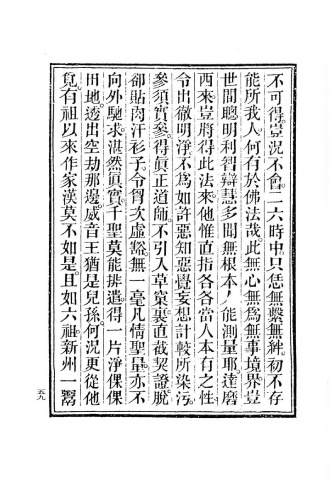 不可得。豈況不會。二六時中。只恁無繫無絆。初不存
能所我人。何有於佛法哉。此無心無為無事境界。豈
世間聰明利智辯慧多聞無根本人能測量耶。達磨
西來。豈將得此法來。他惟直指各各當人本有之性。
令出徹明淨。不為如許惡知惡覺妄想計較所染污。
參須實參。得眞正道師不引入草窠裏。直截契證。脫
卻貼肉汗衫子。令胷次虛豁。無一毫凡情聖量。亦不
向外馳求。湛然眞實。千聖莫能排遣。得一片淨倮倮
田地。透出空劫那邊。威音王猶是兒孫。何況更從他
覓。有祖以來。作家漢莫不如是。且如六祖。新州一鬻
五九